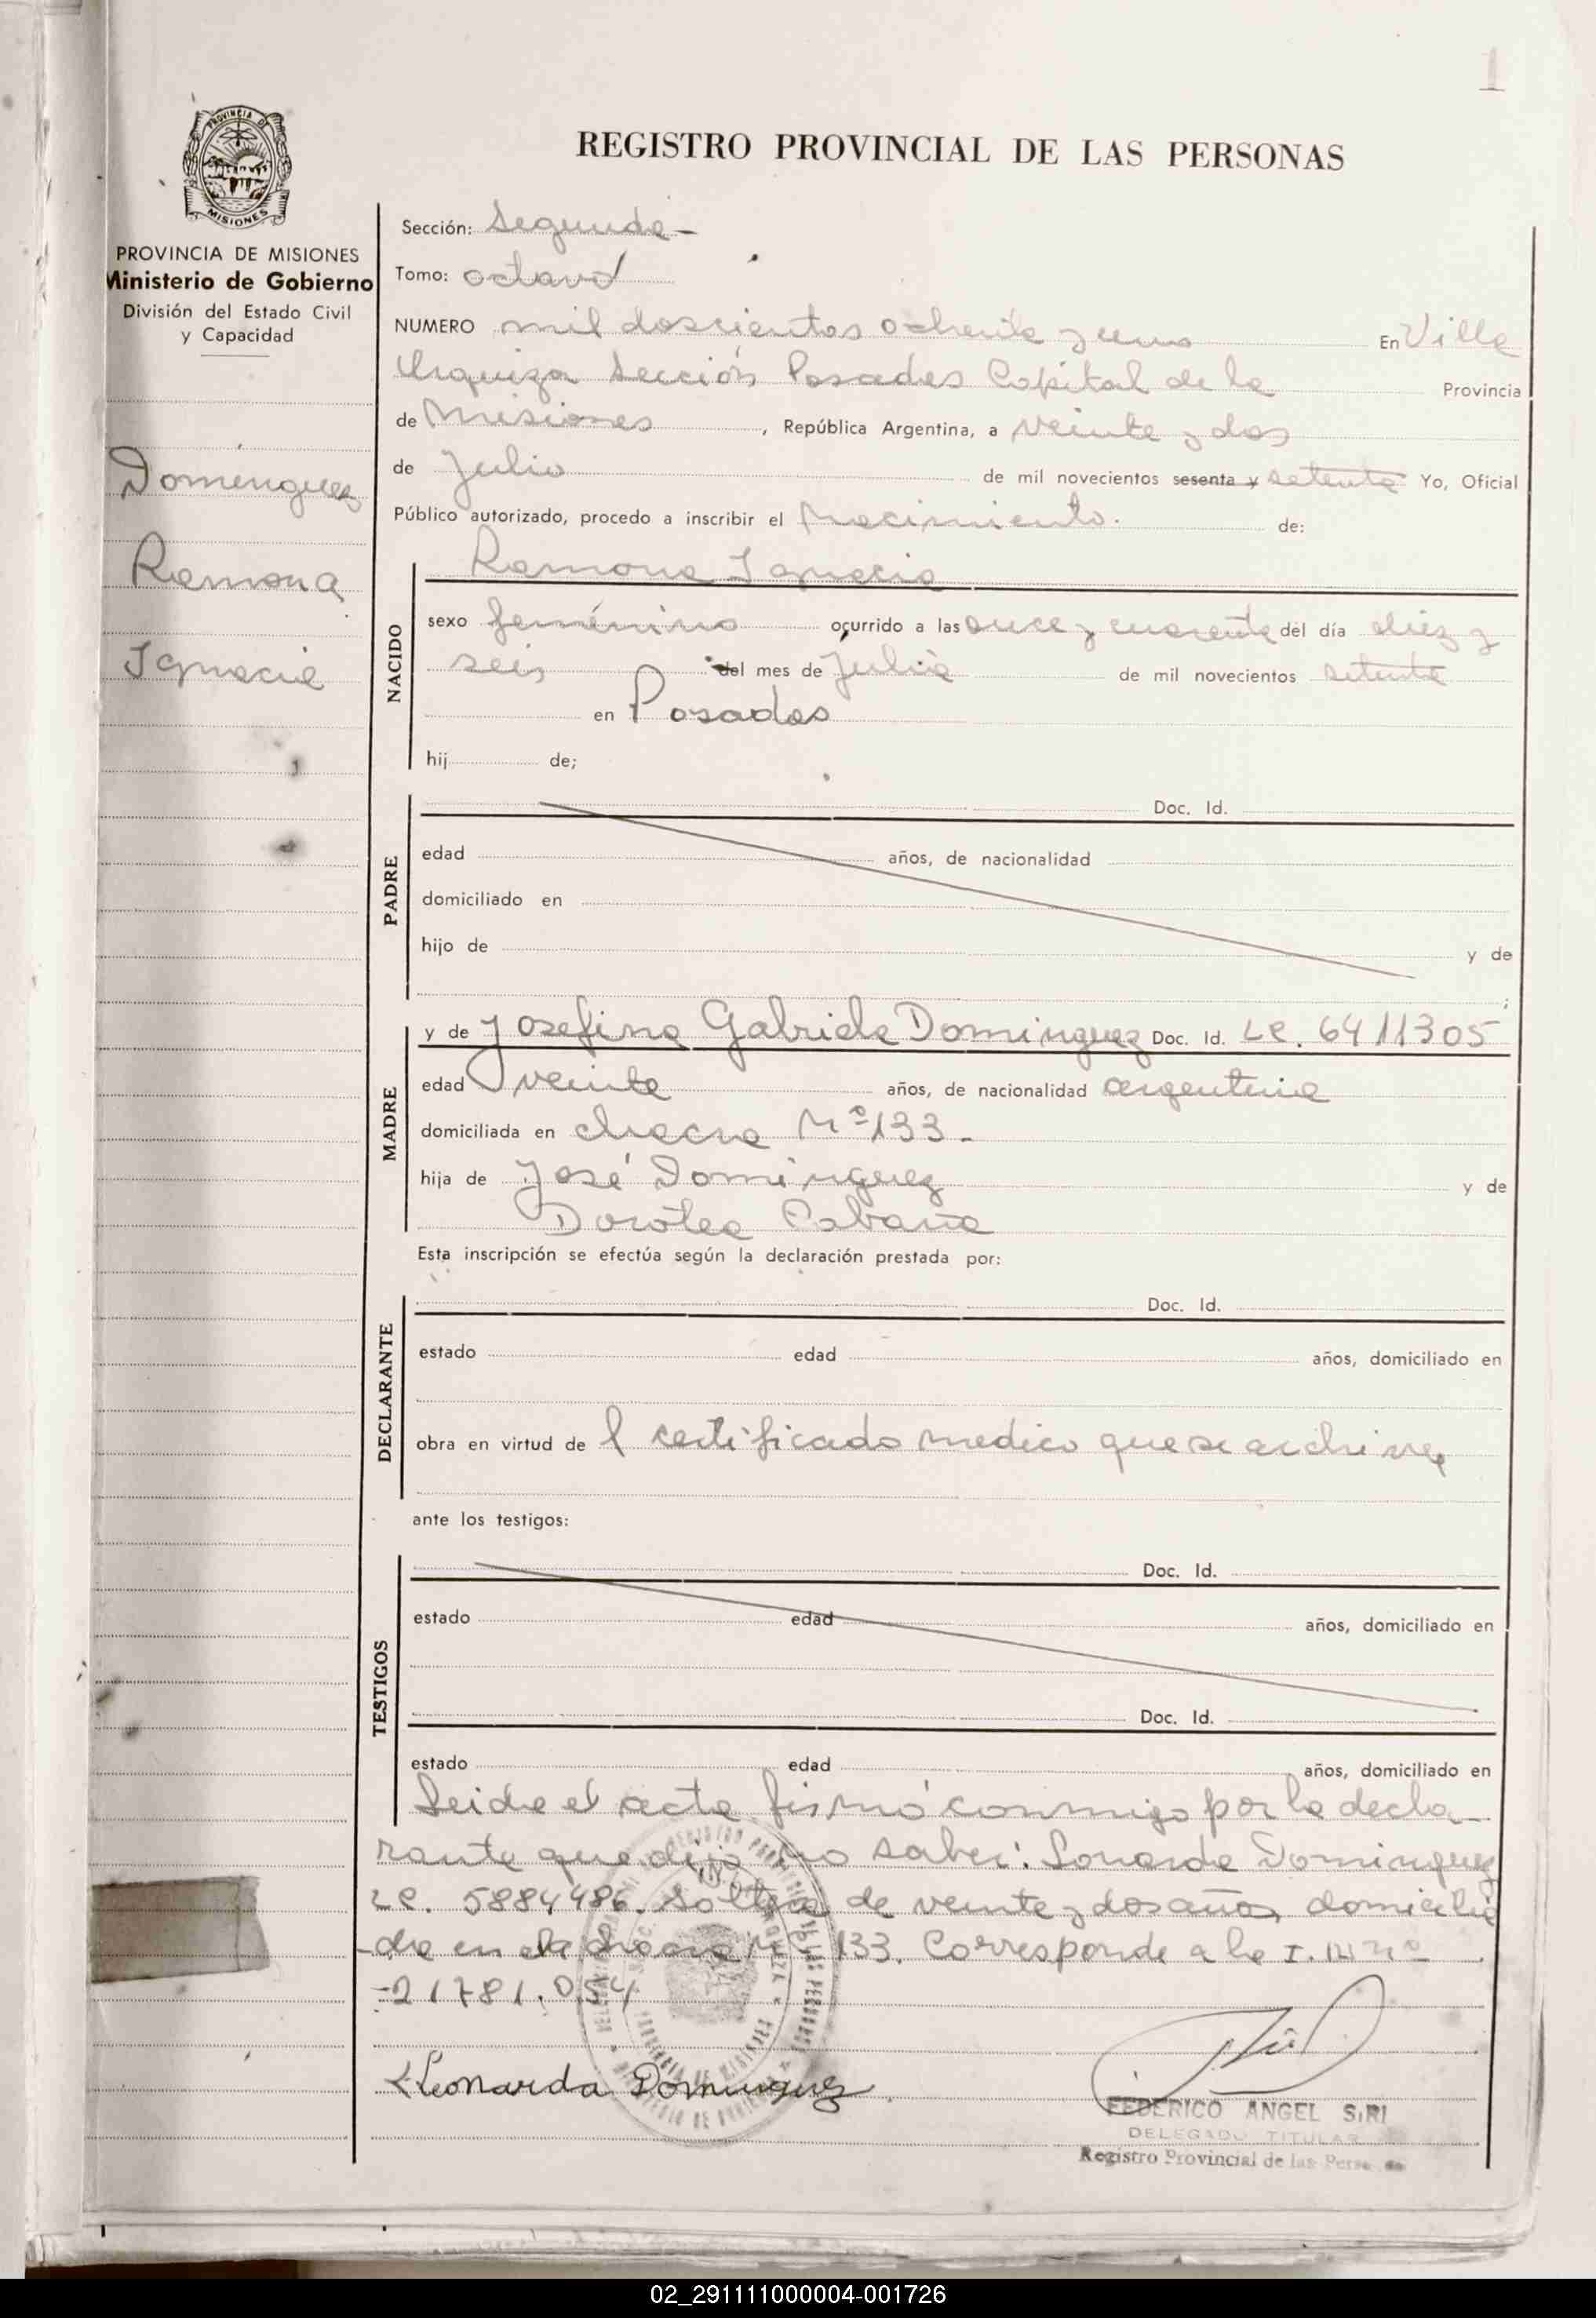 1
PROVINCIA DE
MISIONES
REGISTRO PROVINCIAL DE LAS PERSONAS
PROVINCIA DE MISIONES
Ministerio de Gobierno
División del Estado Civil
y Capacidad
Dominguez
Ramona
Ignacia
Sección: Segunda -
Tomo: octavo
NUMERO mil doscientos ochenta y uno En Villa
Urquiza Sección Posadas Capital de la Provincia
de Misiones, República Argentina, a veinte y dos
de Julio de mil novecientos sesenta y setenta Yo, Oficial
Público autorizado, procedo a inscribir el Nacimiento. de:
NACIDO
Ramona Ignacia
sexo femenino ocurrido a las once y cuarenta del día diez y
seis del mes de Julio de mil novecientos setenta
en Posadas
hij de;
PADRE
Doc. Id.
edad años, de nacionalidad
domiciliado en
hijo de y de
;
MADRE
y de Josefina Gabriela Dominguez Doc. Id. LC. 6411305
edad veinte años, de nacionalidad argentina
domiciliada en chacra Nº 133 -
hija de José Dominguez y de
Dorotea Cabaña
Esta inscripción se efectúa según la declaración prestada por:
DECLARANTE
Doc. Id.
estado edad años, domiciliado en
obra en virtud de l certificado medico que se archiva
ante los testigos:
TESTIGOS
Doc. Id.
estado edad años, domiciliado en
Doc. Id.
estado edad años, domiciliado en
Leida el acta firmó conmigo por la decla-
rante que dijo no saber: Lonarda Dominguez
LC. 5884486. Soltera de veinte y dos años domicilia
da en la chacra Nº 133. Corresponde a la I. nº
-21781.054
Leonarda Dominguez
FEDERICO ANGEL SIRI
DELEGADO TITULAR
Registro Provincial de las Perso
02_291111000004-001726